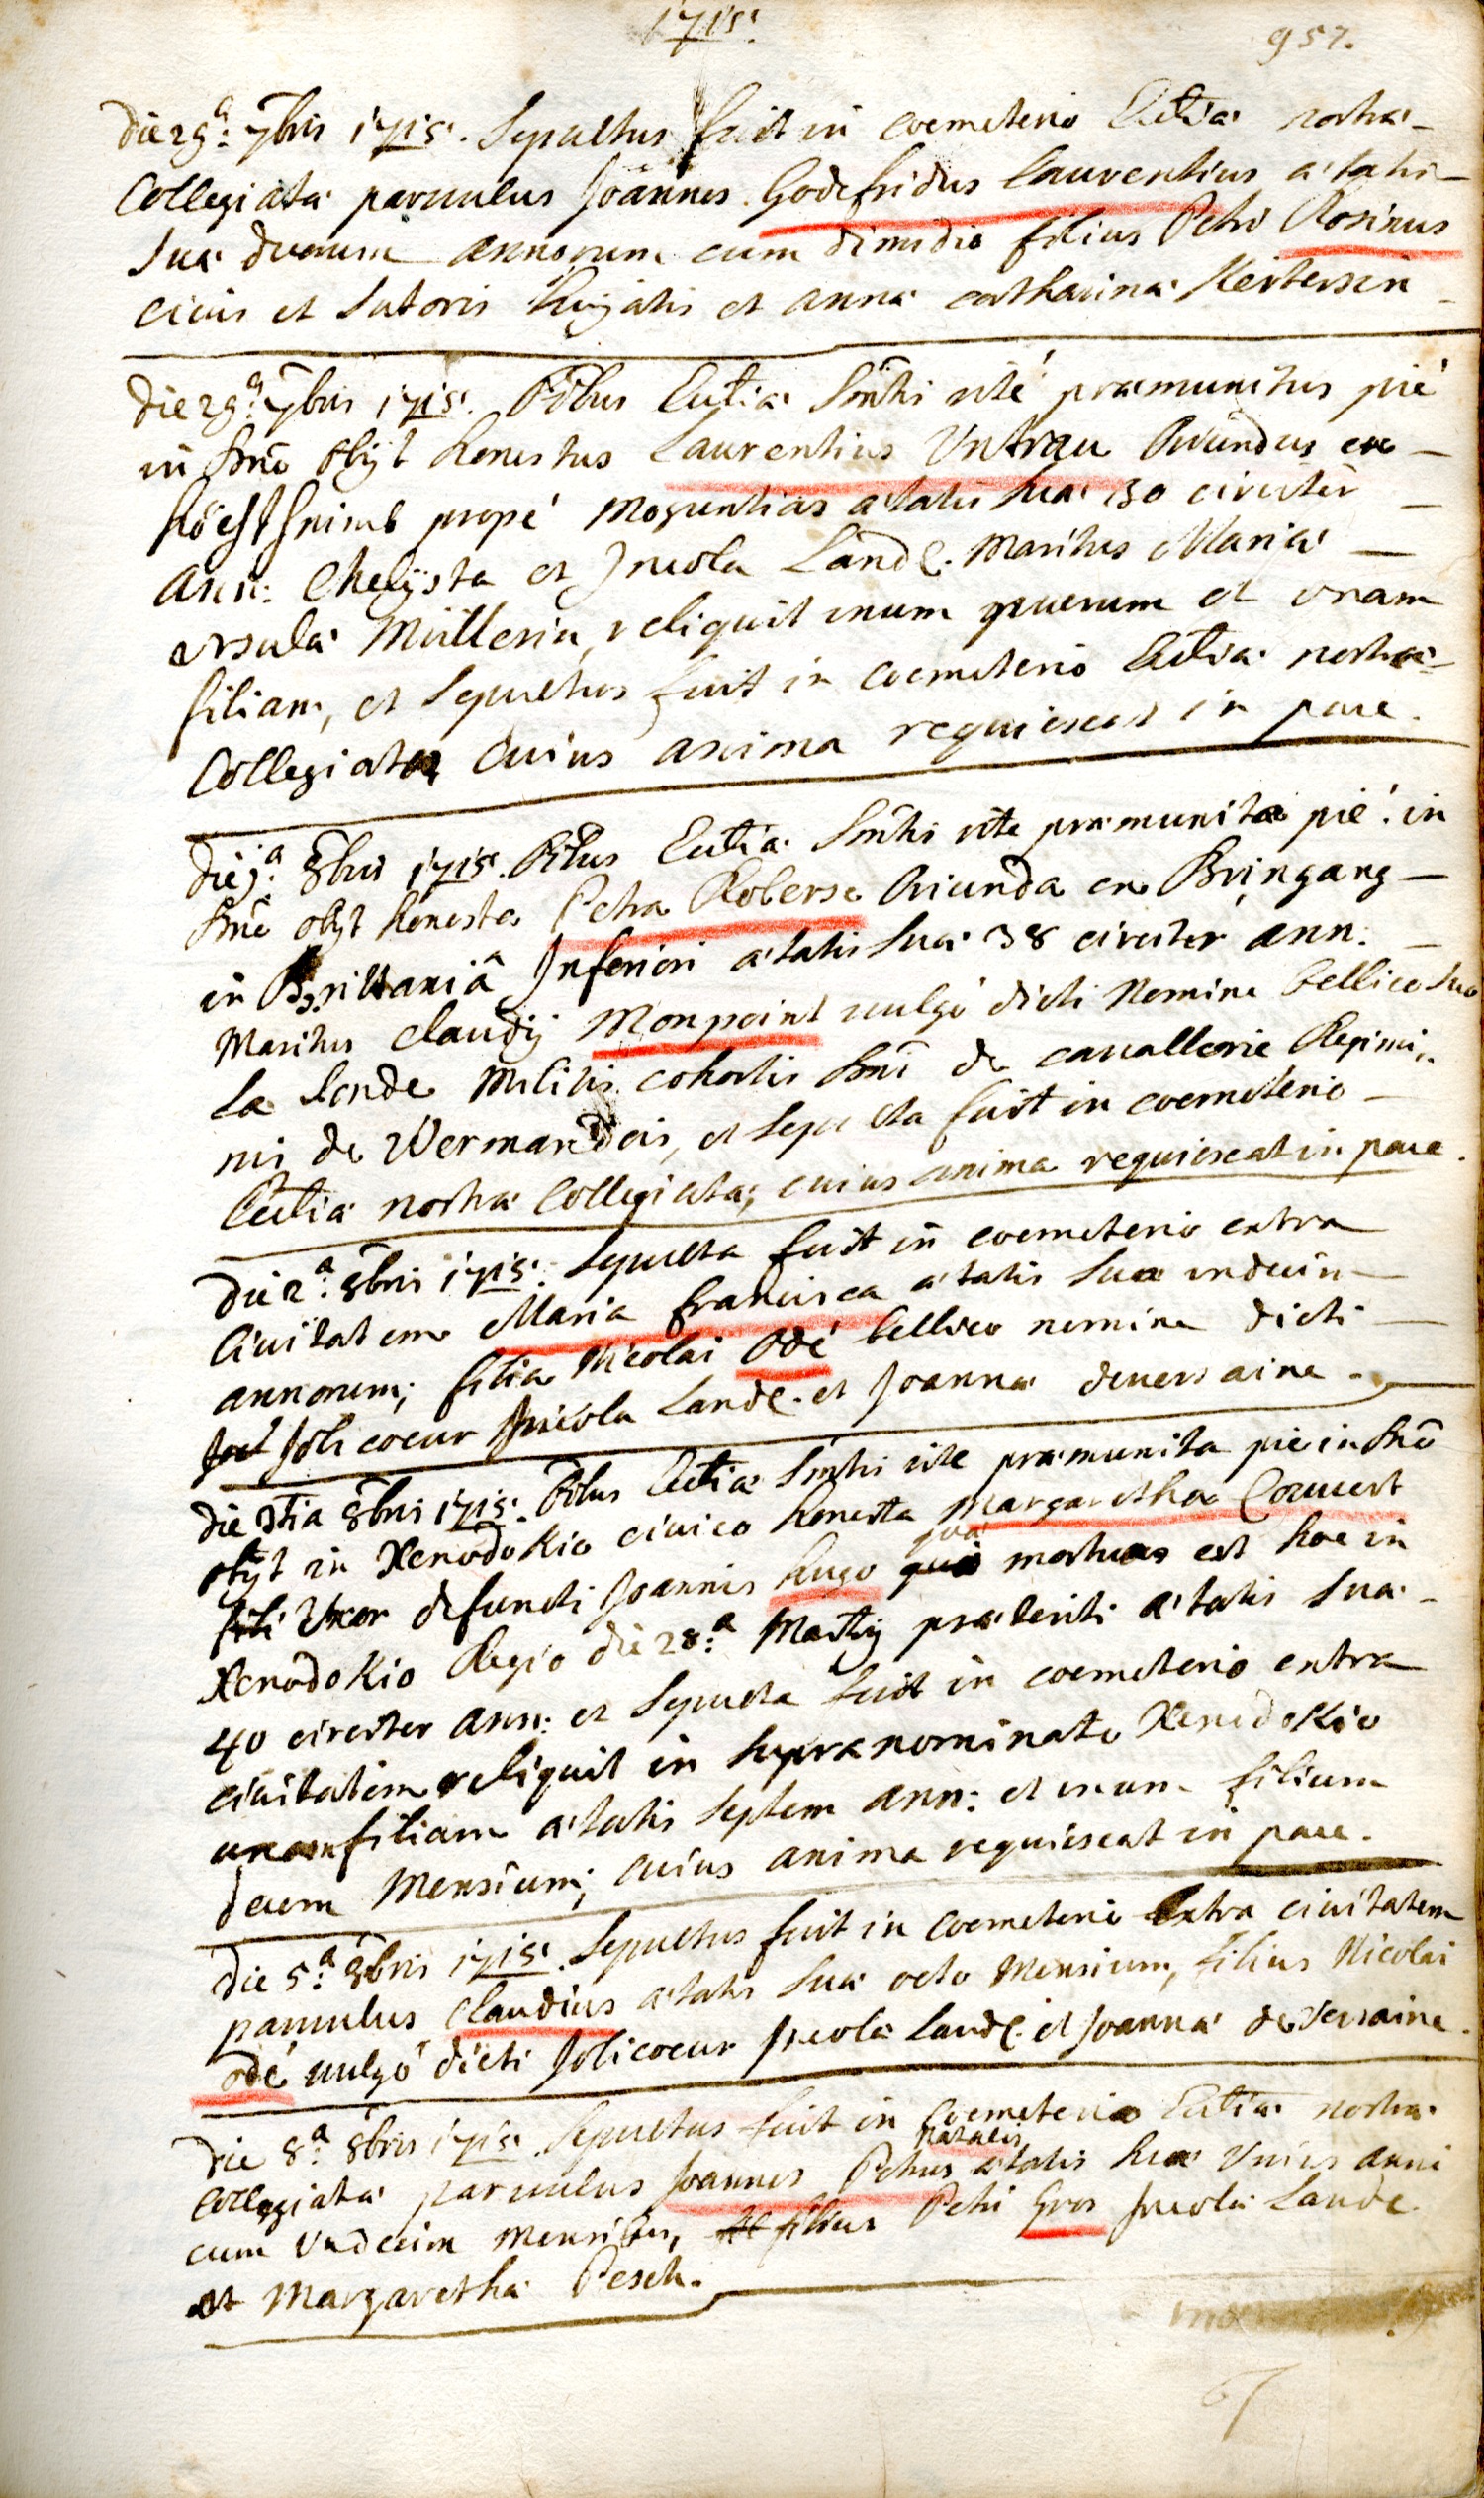 1715.
957.
die 29.a 7bris 1715. Sepultus fuit in coemeterio Eccliæ nostræ
Collegiatæ paruulus Joannes Godefridus Laurentius ætatis
suæ duorum annorum cum dimidio filius Petri Rosinus
ciuis et sutoris hujatis et anna catharina Kertersin
die 29.a 7bris 1715. oibus Eccliæ Smtis rité præmunitus pié
in Dno obijt honestus Laurentius Vntrau Oriundus ex
höchstheimb propé Moguntias ætatis suæ 30 circiter
ann: Chelijsta et Jncola Land. Maritus Mariæ
ursula Müllerin, reliquit unum puerum et unam
filiam, et Sepultus fuit in coemeterio Eccliæ nostræ
Collegiatæ cuius anima requiescat in pace.
die j.a 8bris 1715. oibus Eccliæ Smtis rite præmunita pié in
Dno obijt honesta Petra Roberse Oriunda ex Bringang
in Brittaniâ Jnferiori ætatis suæ 38 circiter ann:
Maritus Claudij Monpoint uulgó dicti Nomine bellico suo
La Londe Militis cohortis Dni de cauallerie Regimi
nis de Wermandois, et sepulta fuit in coemeterio
Eccliæ nostræ Collegiatæ, cuius anima requiescat in pace.
die 2.a 8bris 1715. Sepulta fuit in coemeterio extra
Ciuitatem Maria francisca ætatis Suæ undecim
annorum, filia Nicolai Odé bellico nomine dicti
Jolicoeur Jncola Land. et Joanna deuersaine.
die 3tia 8bris 1715. oibus Eccliæ Smtis rite præmunita pie in Dno
obijt in Xenodokio ciuico honesta Margaretha Couuert
Uxor defuncti Joannis hugo qui mortuus est hoc in
Xenodokio Regio die 28.a Martij præteriti ætatis suæ
40 circiter ann: et Sepulta fuit in coemeterio extra
ciuitatem reliquit in supranominato Xenodokio
unam filiam ætatis septem ann: et unum filium
decem Mensium; cuius anima requiescat in pace.
die 5.a 8bris 1715. Sepultus fuit in coemeterio Extra ciuitatem
paruulus Claudius ætatis suæ octo Mensium, filius Nicolai
odé uulgó dicti Jolicoeur Jncola Land. et Joanna de Versaine.
die 8.a 8bris 1715. Sepultus fuit in Coemeterio Eccliæ nostræ
natalis
Collegiatæ paruulus Joannes Petrus ætatis suæ Unius anni
cum Undecim Mensibus, filius Petri Gros Jncola Land.
et Margaretha Pesch.